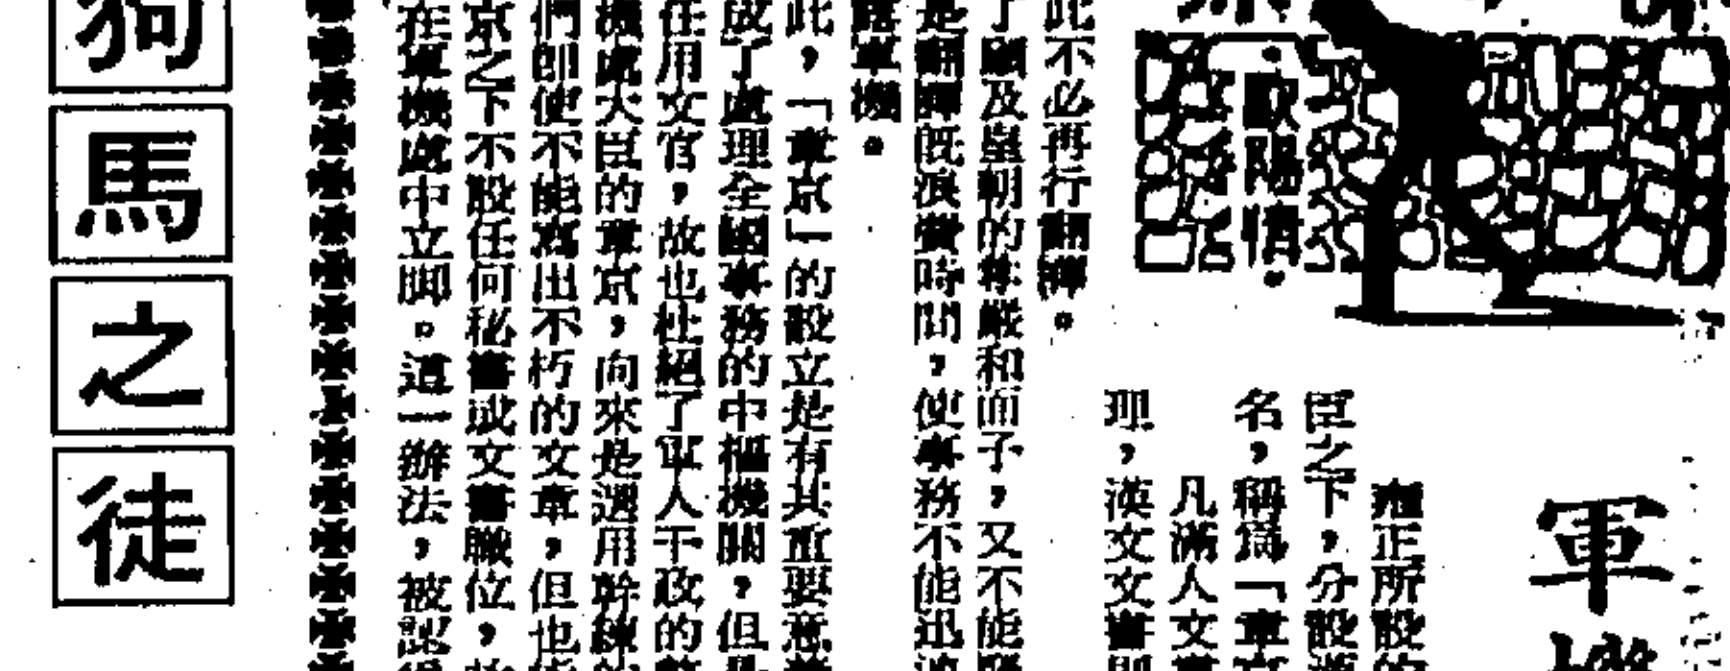 軍機
歐陽悟
雍正所設的
臣之下，分設滿
名，稱爲「章京
凡滿人文書
理，漢文文書則
此不必再行翻譯。
了顧及皇朝的尊嚴和面子，又不能
是翻譯旣浪費時間，使事務不能迅速
誤軍機。
此，「章京」的設立是有其重要意義
成了處理全國事務的中樞機關，但是
任用文官，故也杜絕了軍人干政的弊
機處大臣的章京，向來是選用幹練的
們卽使不能寫出不朽的文章，但也能
京之下不設任何秘書或文書職位，
在軍機處中立脚。這一辦法，被認爲
狗馬之徒